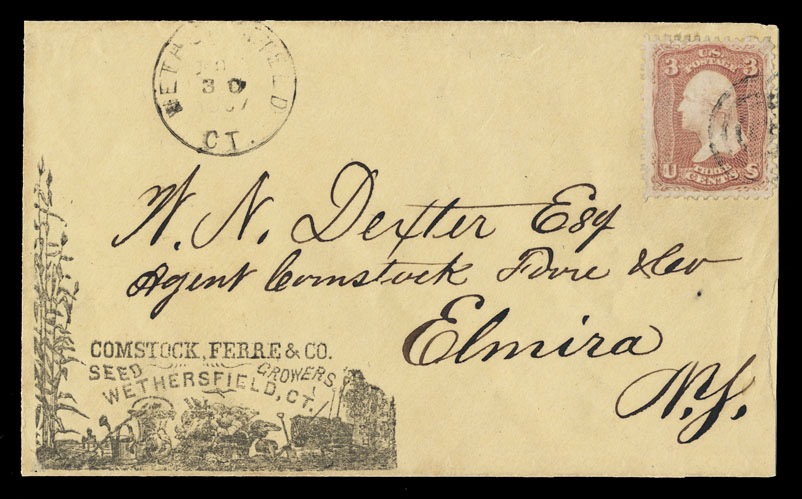 WETHERSFIELD
30
CT.
U.S.
POSTAGE
3 3
THREE
U CENTS S
W. N. Dexter Esq
Agent Comstock Ferre & Co
Elmira
N.Y.
COMSTOCK, FERRE & CO.
SEED GROWERS,
WETHERSFIELD, CT.